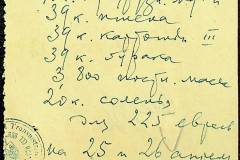 39 к. пшена
39 к. картошки III
39 к. бурака
3 800 постн. масл
20 к. соленья
для 225 евреев
на 25 и 26 апреля